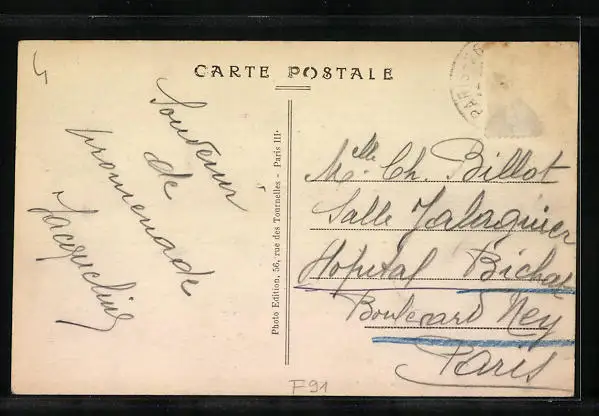 CARTE POSTALE
PARIS
Souvenir
de
promenade
Jacqueline
Photo Edition, 56, rue des Tournelles - Paris III
Mlle Ch. Billot
Salle Jalaguier
Hopital Bichat
Boulevard Ney
Paris
F91